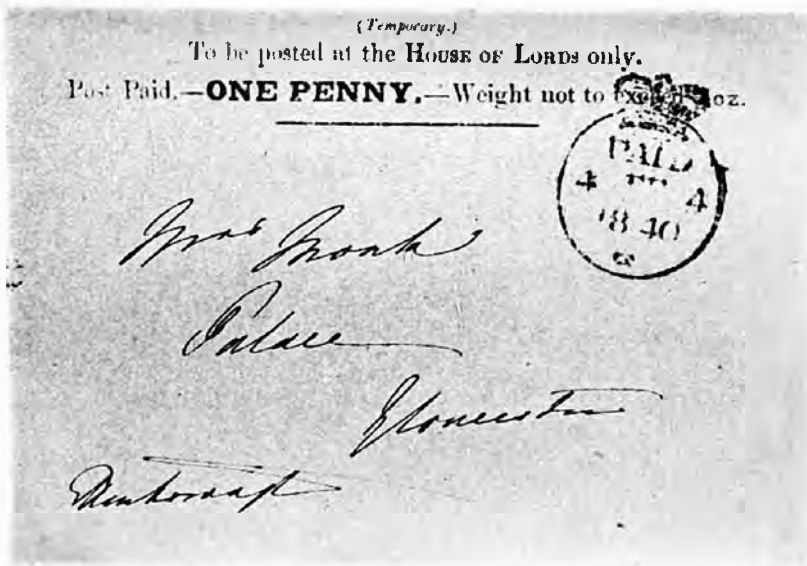 (Temporary.)
To be posted at the HOUSE OF LORDS only.
Post Paid.—ONE PENNY.—Weight not to exceed oz.
PAID
4 4
1840
Mrs Monk
Palace
Gloucester